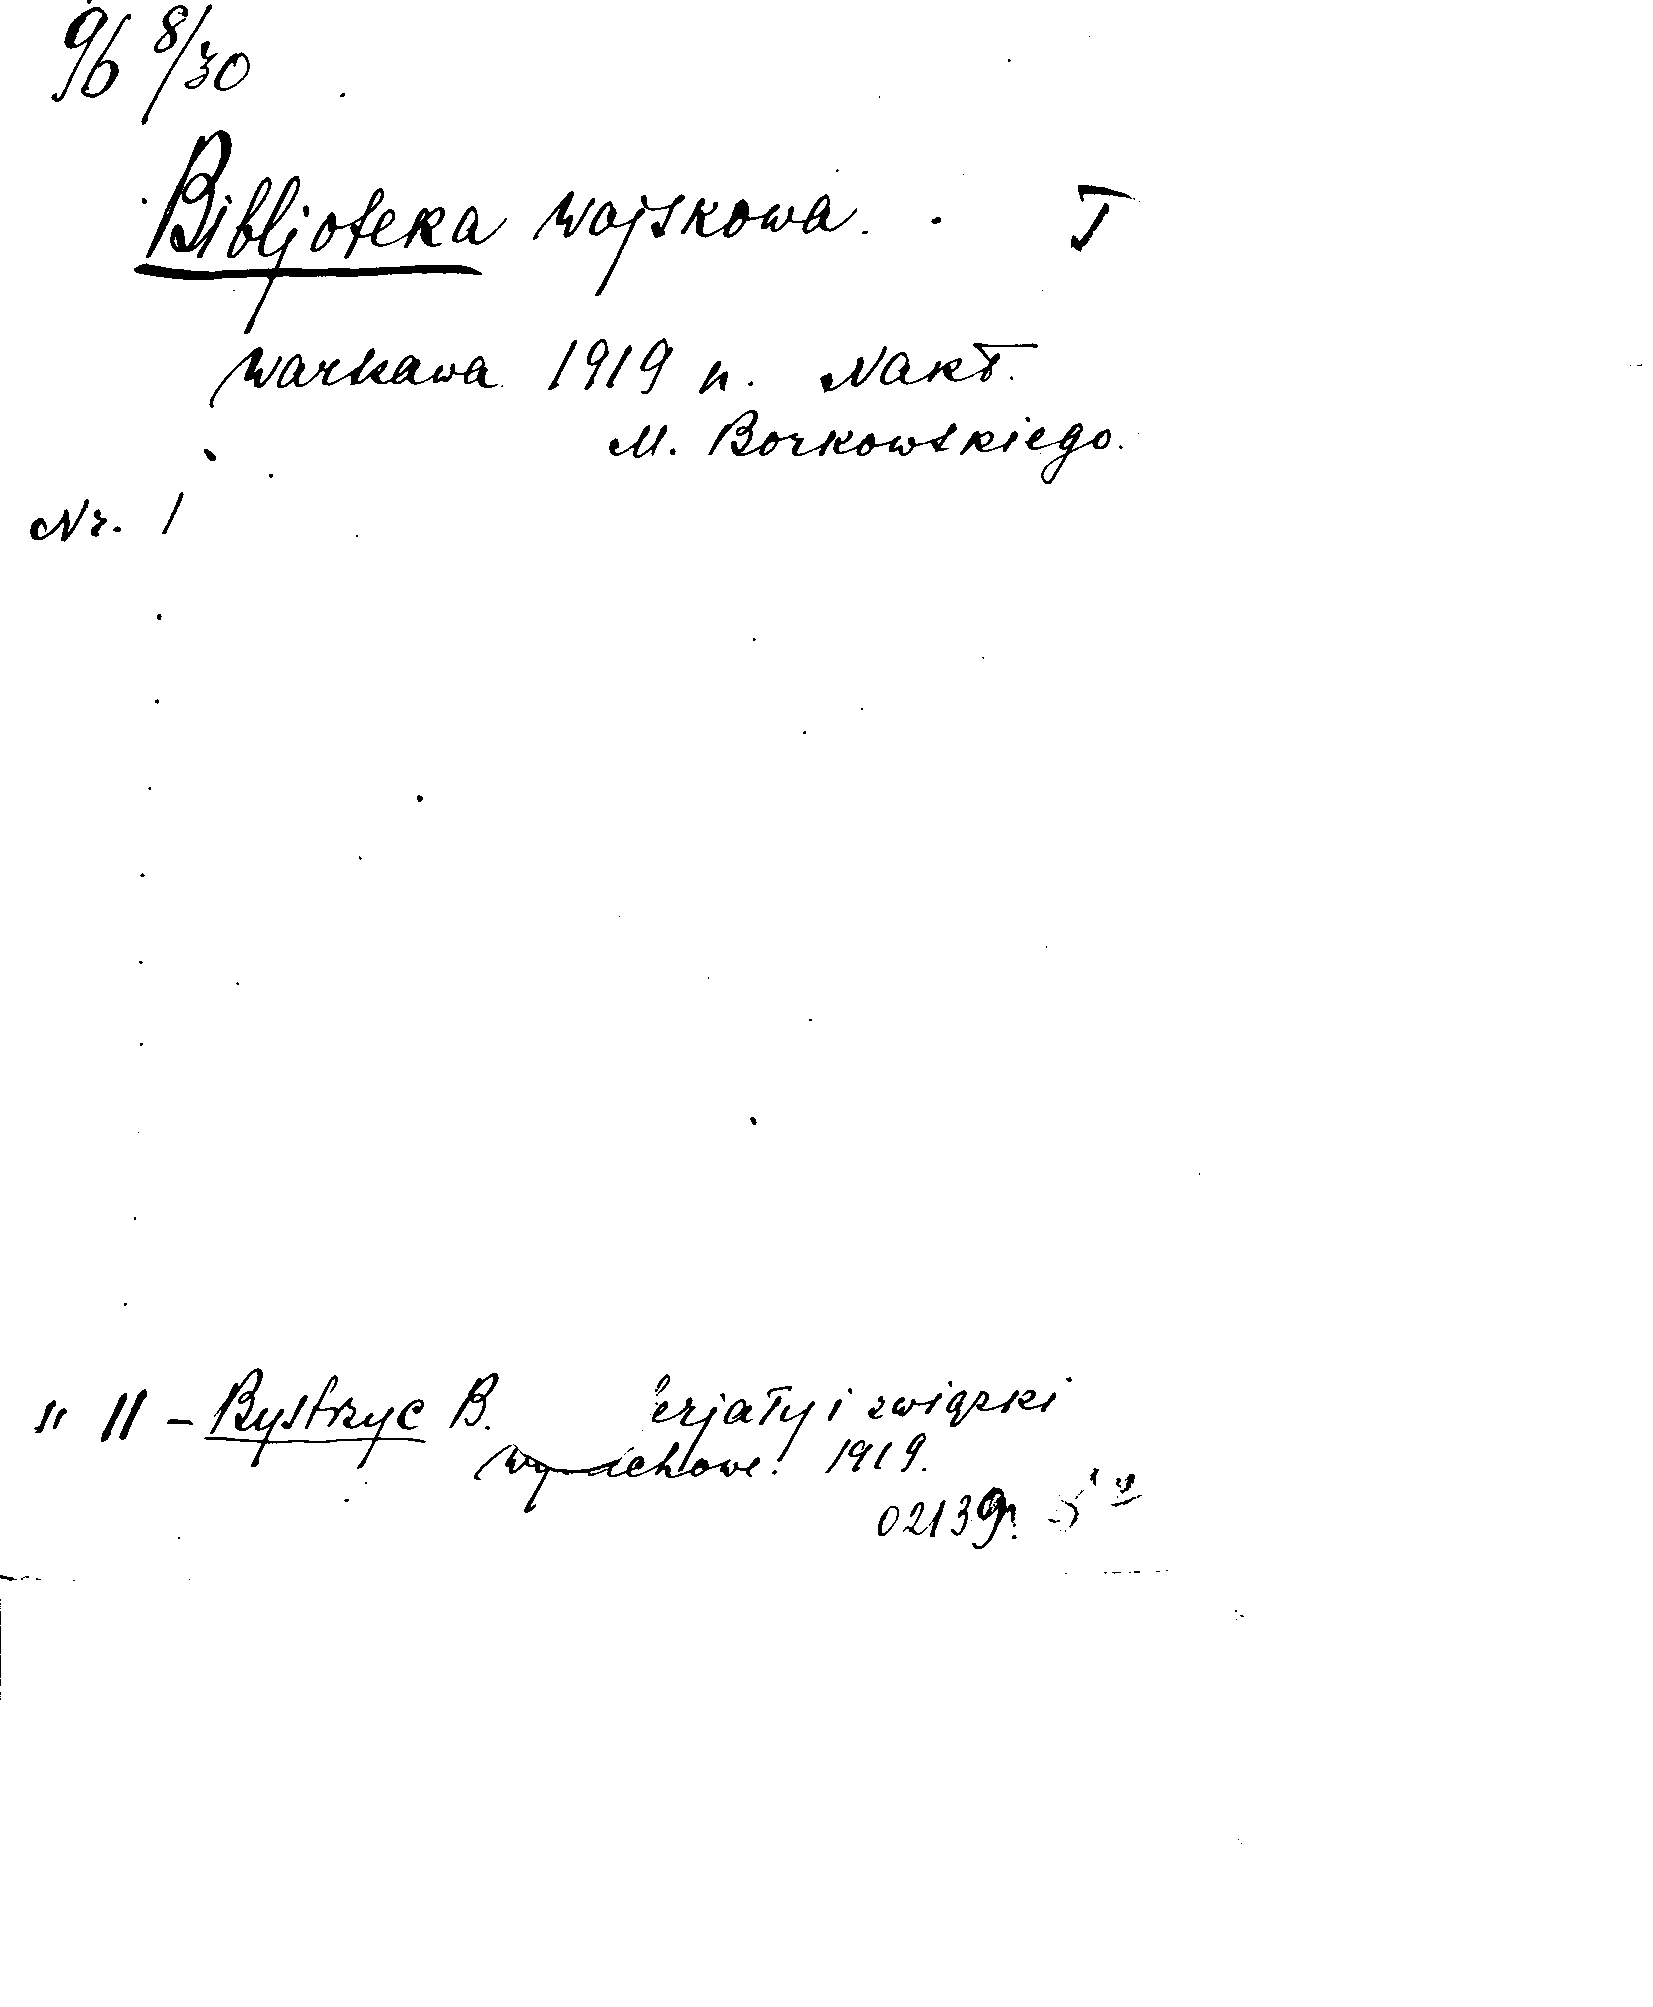 96 8/30
Bibljoteka wojskowa. I
Warszawa 1919 r. Nakł.
M. Borkowskiego.
Nr. 1
" 11 - Bystrzyc B. i związki
1919.
02139